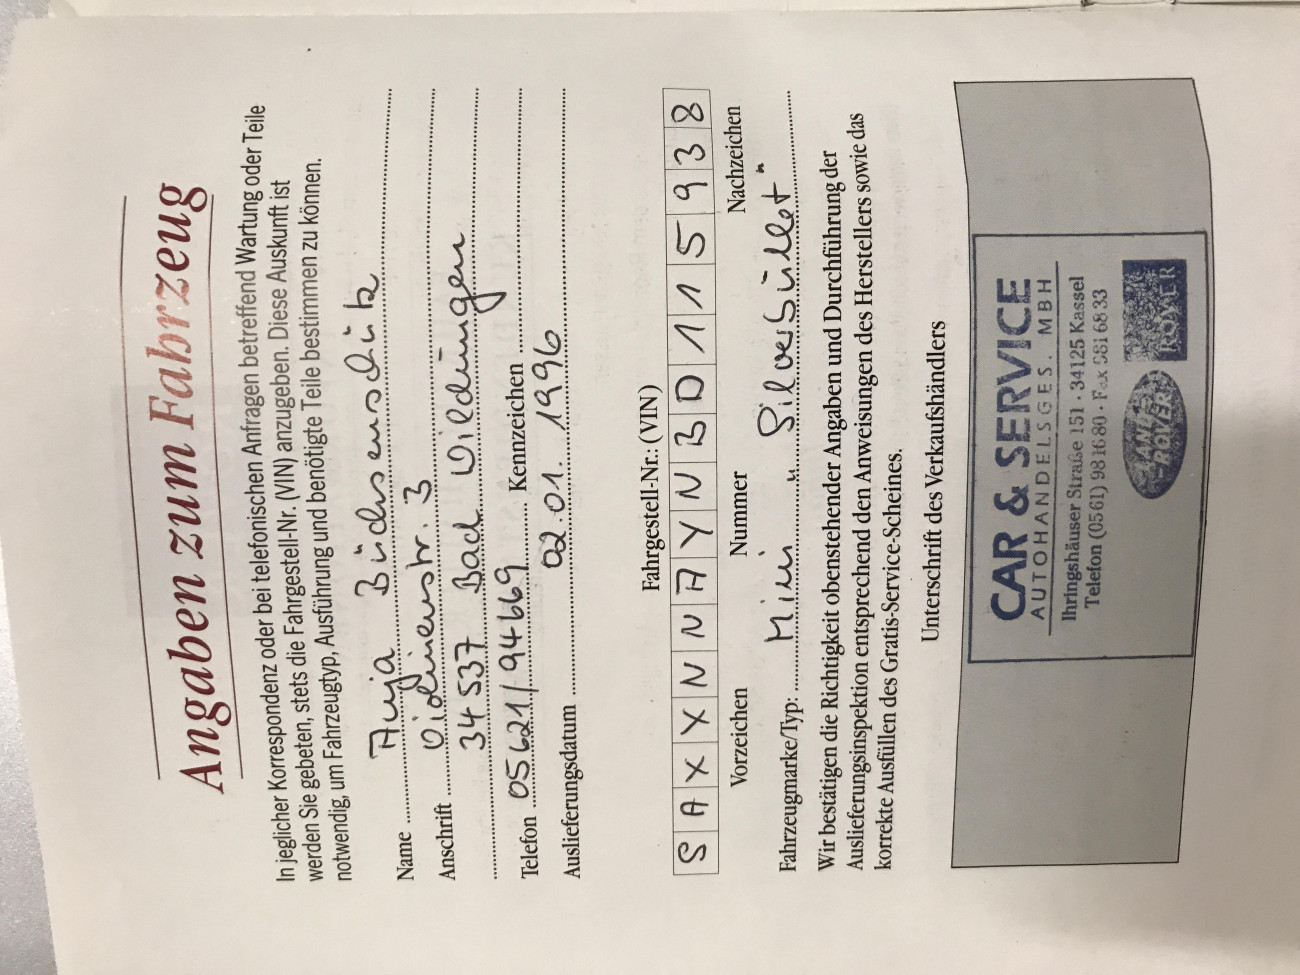 Angaben zum Fahrzeug
In jeglicher Korrespondenz oder bei telefonischen Anfragen betreffend Wartung oder Teile
werden Sie gebeten, stets die Fahrgestell-Nr. (VIN) anzugeben. Diese Auskunft ist
notwendig, um Fahrzeugtyp, Ausführung und benötigte Teile bestimmen zu können.
Name Anja Büchsenschütz
Anschrift Violinenstr. 3
34537 Bad Wildungen
Telefon 05621/94669 Kennzeichen
Auslieferungsdatum 02.01.1996
Fahrgestell-Nr.: (VIN)
SAXXNNAYNBD115938
Vorzeichen Nummer Nachzeichen
Fahrzeugmarke/Typ: Mini "Silverbullet"
Wir bestätigen die Richtigkeit obenstehender Angaben und Durchführung der
Auslieferungsinspektion entsprechend den Anweisungen des Herstellers sowie das
korrekte Ausfüllen des Gratis-Service-Scheines.
Unterschrift des Verkaufshändlers
CAR & SERVICE
AUTOHANDELSGES. MBH
Ihringshäuser Straße 151 · 34125 Kassel
Telefon (0561) 98 16 80 · Fax 981 68 33
LAND ROVER
ROVER